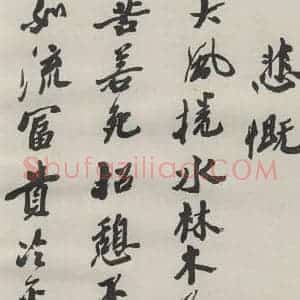 悲慨
大風捲水林木
苦若死招憩不
如流富貴冷灰
Shufaziliao.COM